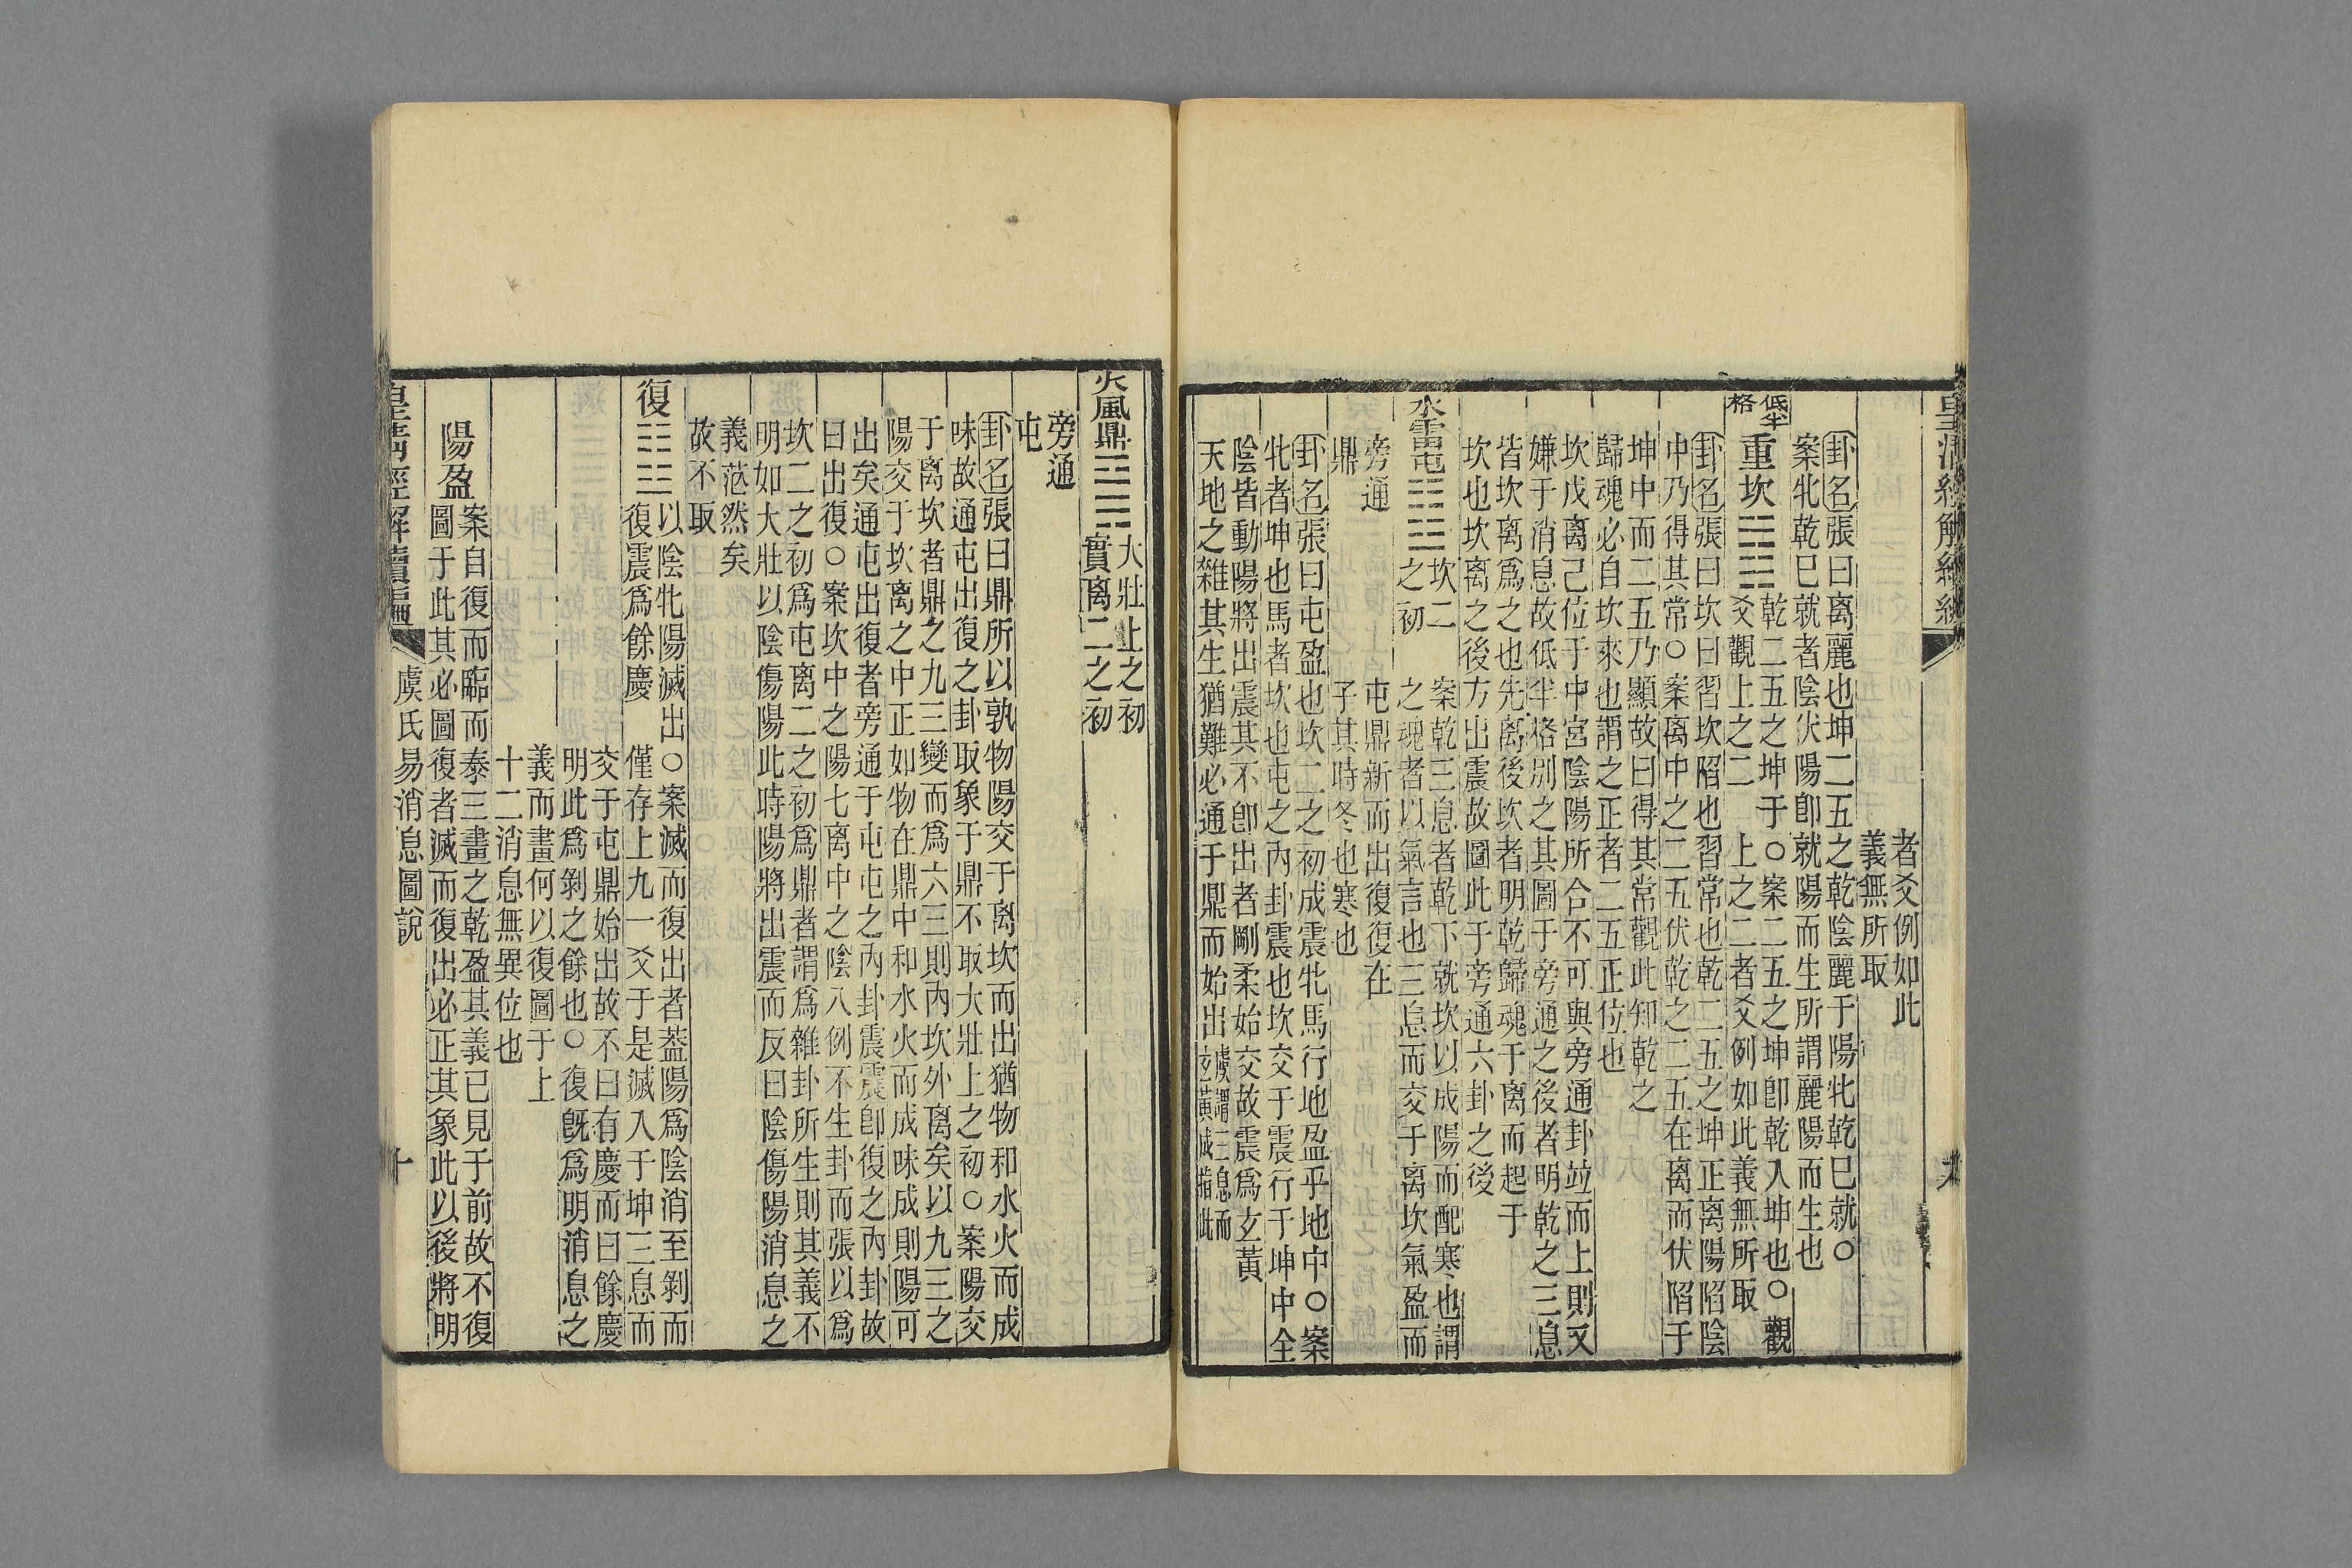 者爻例如此
義無所取
卦名張曰离麗也坤二五之乾陰麗于陽牝乾已就○
案牝乾已就者陰伏陽卽就陽而生所謂麗陽而生也
低半格
重坎
乾二五之坤于○案二五之坤卽乾入坤也○觀
爻觀上之二　上之二者爻例如此義無所取
卦名張曰坎曰習坎陷也習常也乾二五之坤正离陽陷陰
中乃得其常○案离中之二五伏乾之二五在离而伏陷于
坤中而二五乃顯故曰得其常觀此知乾之
歸魂必自坎來也謂之正者二五正位也
坎戊离己位于中宮陰陽所合不可與旁通卦竝而上則又
嫌于消息故低半格別之其圖于旁通之後者明乾之三息
皆坎离爲之也先离後坎者明乾歸魂于离而起于
坎也坎离之後方出震故圖此于旁通六卦之後
水雷屯
坎二　案乾三息者乾下就坎以成陽而配寒也謂
之初　之魂者以氣言也三息而交于离坎氣盈而
旁通　屯鼎新而出復復在
鼎　子其時冬也寒也
卦名張曰屯盈也坎二之初成震牝馬行地盈乎地中○案
牝者坤也馬者坎也屯之內卦震也坎交于震行于坤中全
陰皆動陽將出震其不卽出者剛柔始交故震爲玄黃
天地之雜其生猶難必通于鼎而始出虞謂三息而
玄黃誠指此
皇清經解續編
火風鼎
大壯上之初
實离二之初
旁通
屯
卦名張曰鼎所以孰物陽交于离坎而出猶物和水火而成
味故通屯出復之卦取象于鼎不取大壯上之初○案陽交
于离坎者鼎之九三變而爲六三則內坎外离矣以九三之
陽交于坎离之中正如物在鼎中和水火而成味成則陽可
出矣通屯出復者旁通于屯屯之內卦震震卽復之內卦故
曰出復○案坎中之陽七离中之陰八例不生卦而張以爲
坎二之初爲屯离二之初爲鼎者謂爲雜卦所生則其義不
明如大壯以陰傷陽此時陽將出震而反曰陰傷陽消息之
義茫然矣
故不取
復
以陰牝陽滅出○案滅而復出者葢陽爲陰消至剝而
復震爲餘慶　僅存上九一爻于是滅入于坤三息而
交于屯鼎始出故不曰有慶而曰餘慶
明此爲剝之餘也○復旣爲明消息之
義而畫何以復圖于上
十二消息無異位也
陽盈
案自復而臨而泰三畫之乾盈其義已見于前故不復
圖于此其必圖復者滅而復出必正其象此以後將明
皇清經解續編
虞氏易消息圖說
十